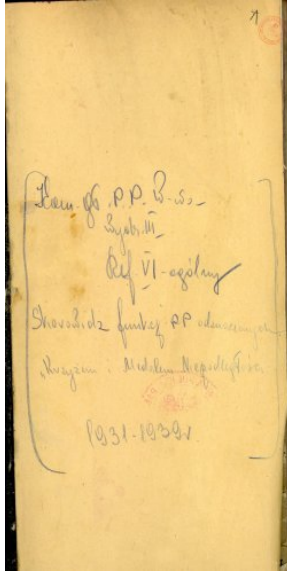 1
Kom. Gł. P.P. W-wa
Wydz. III
Ref. VI - ogólny
Skorowidz funkcj. PP odznaczonych
"Krzyżem i Medalem Niepodległości
1931-1939r